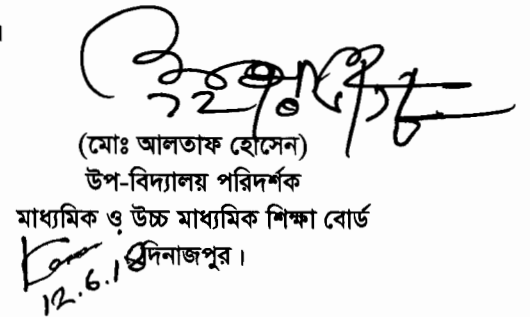 (মোঃ আলতাফ হোসেন)
উপ-বিদ্যালয় পরিদর্শক
মাধ্যমিক ও উচ্চ মাধ্যমিক শিক্ষা বোর্ড
দিনাজপুর।
12.6.18